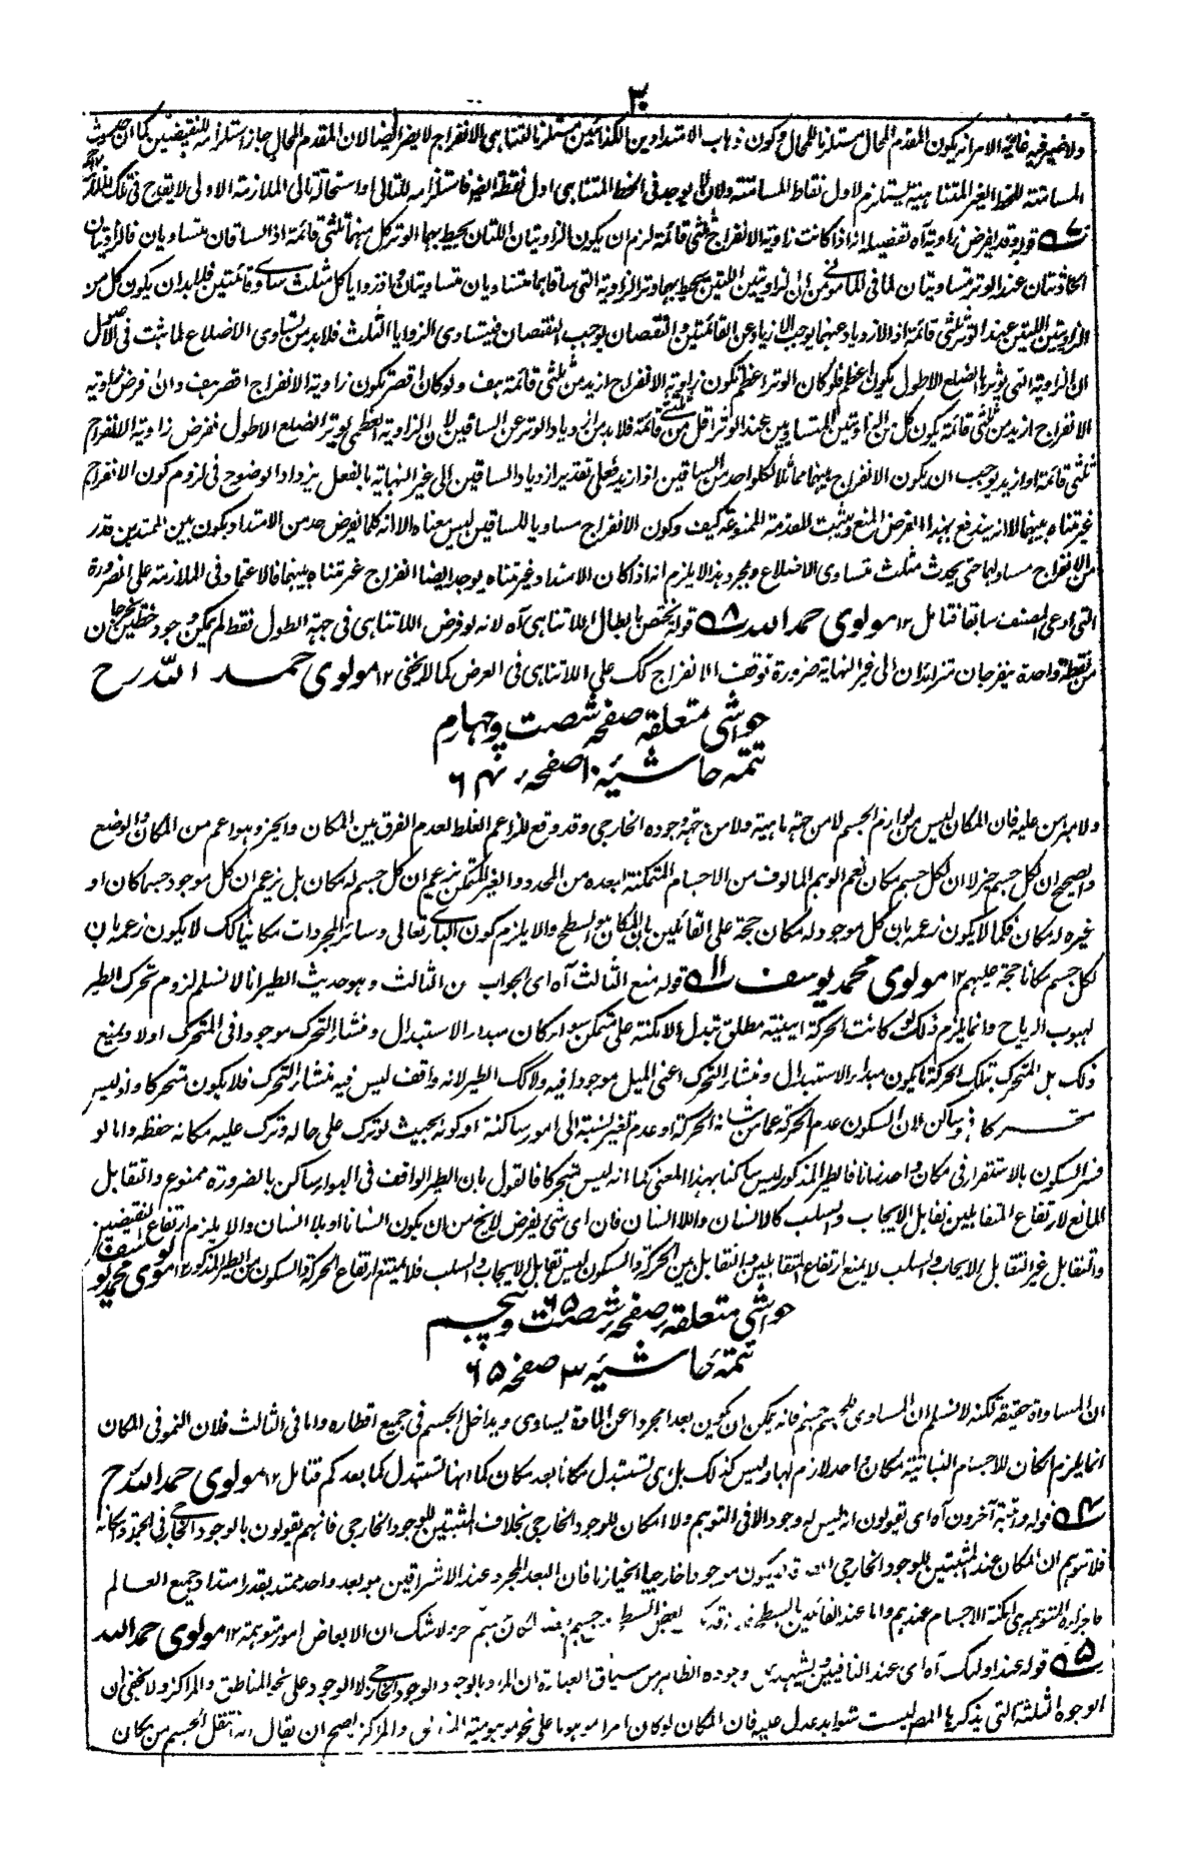 ۳۰
ولا ضير فيه غاية الامر انه يكون المقدم المحال مستلزما للمحال وكون ذهاب الامتدادين الكذائيين مستلزما للتناهى بالانفراج لا يضر ايضا لان المقدم المحال جاز استلزامه للنقيضين كما ان حديث
المسامتة للخط الغير المتناهية يستلزم لاول نقاط المسامتة ولان لا يوجد فى الخط المتناهى اول نقطة ايضا فاستلزامه للتالى او استحالة تالى الملازمة الاولى لا يقدح فى تلك الملازمة ۱۲
۷ قوله وقد يفرض زاوية آه تفصيله انه اذا كانت زاوية الانفراج ثلثى قائمة لزم ان يكون الزاويتان اللتان يحيط بهما الوتر كل منهما ثلثى قائمة اذ الساقان متساويان فالزاويتان
الحادثتان عند الوتر متساويتان لما فى المامونى من ان الزاويتين اللتين يحيط بهما وتر الزاوية التى ساقاهما متساويان متساويتان واذ زوايا كل مثلث يساوى قائمتين فلا بد ان يكون كل من
الزاويتين اللتين عند الوتر ثلثى قائمة اذ الازدياد عنهما يوجب الازدياد عن القائمتين والنقصان يوجب النقصان فيتساوى الزوايا الثلث فلا بد من تساوى الاضلاع لما ثبت فى الاصول
ان الزاوية التى يوترها الضلع الاطول يكون اعظم فلو كان الوتر اعظم يكون زاوية الانفراج ازيد من ثلثى قائمة هف ولو كان اقصر يكون زاوية الانفراج اقصر هف وان فرض زاوية
الانفراج ازيد من ثلثى قائمة يكون كل من الزاويتين المتساويتين عند الوتر اقل من ثلثى قائمة فلا بد من ازدياد الوتر عن الساقين لان الزاوية العظمى يوترها الضلع الاطول نفرض زاوية الانفراج
ثلثى قائمة او ازيد يوجب ان يكون الانفراج بينهما مماثلا لكل واحد من الساقين او ازيد فعلى تقدير ازدياد الساقين الى غير النهاية بالفعل يزداد الوضوح فى لزوم كون الانفراج
غير متناه بينهما لا انه يندفع بهذا الفرض المنع ويثبت المقدمة الممنوعة كيف وكون الانفراج مساويا للساقين ليس معناه الا انه كلما يفرض حد من الامتداد يكون بين الممتدين قدر
من الانفراج مساو لهما حتى يحدث مثلث متساوى الاضلاع وبمجرد هذا لا يلزم انه اذا كان الامتداد غير متناه يوجد ايضا انفراج غير متناه بينهما فالاعتماد فى الملازمة على الضرورة
التى ادعى المصنف سابقا فتامل ۱۲ مولوى حمد الله ۸ قوله يختص بابطال اللاتناهى آه لانه لو فرض اللاتناهى فى جهة الطول فقط لم يمكن وجود خطين يخرجان
من نقطة واحدة ينفرجان متزائدان الى غير النهاية ضرورة توقف الانفراج كك على اللاتناهى فى العرض كما لا يخفى ۱۲ مولوى حمد الله رح
حواشى متعلقه صفحه شصت وچهارم
تتمه حاشيهٔ ۱۰ صفحه نهم ۶
ولا برهان عليه فان المكان ليس من لوازم الجسم لا من جهة ماهيته ولا من جهة وجوده الخارجى وقد وقع للزاعم الغلط لعدم الفرق بين المكان والحيز وهو اعم من المكان والوضع
والصحيح ان لكل جسم حيزا لا ان لكل جسم مكان نعم الوهم المالوف من الاجسام المتمكنة ابعده من المحدد والغير المتمكن يزعم ان كل جسم له مكان بل يزعم ان كل موجود جسما كان او
غيره له مكان فكما لا يكون زعمه بان كل موجود له مكان حجة على القائلين بان المكان هو السطح والا يلزم كون البارى تعالى وسائر المجردات مكانيا كك لا يكون زعمه بان
لكل جسم مكانا حجة عليهم ۱۲ مولوى محمد يوسف ۱۱ قوله منع الثالث آه اى الجواب عن الثالث وهو حديث الطير انا لا نسلم لزوم تحرك الطير
لهبوب الرياح وانما يلزم ذلك لو كانت الحركة اينية مطلق تبدل الامكنة على المتمكن سواء كان مبدأ الاستبدال ومنشأ التحرك موجودا فى المتحرك اولا ويمنع
ذلك بل المتحرك بتلك الحركة ما يكون مبدأ الاستبدال ومنشأ التحرك اعنى الميل موجودا فيه ولا كك الطير لانه واقف ليس فيه منشأ التحرك فلا يكون متحركا واذ ليس
متحركا فهو ساكن لان السكون عدم الحركة عما من شانه الحركة او عدم تغير نسبته الى امور ساكنة او كونه بحيث لو ترك على حاله وترك عليه مكانه حفظه واما لو
فسر السكون بالاستقرار فى مكان واحد زمانا فالطير المذكور ليس ساكنا بهذا المعنى كما انه ليس متحركا فالقول بان الطير الواقف فى الهواء ساكن بالضرورة ممنوع والتقابل
المانع لارتفاع المتقابلين تقابل الايجاب والسلب كالانسان واللاانسان فان اى شئ يفرض لا يخ من ان يكون انسانا او بلا انسان والا يلزم ارتفاع النقيضين
والتقابل غير التقابل بالايجاب والسلب لا يمنع ارتفاع المتقابلين والتقابل بين الحركة والسكون ليس تقابل الايجاب والسلب فلا يمتنع ارتفاع الحركة والسكون من الطير المذكور ۱۲ مولوى محمد يوسف
حواشى متعلقه صفحه شصت ۶۵ وپنجم
تتمهٔ حاشيهٔ ۳ صفحه ۶۵
ان المساواة حقيقة لكنه لا نسلم ان المساوى للجسم جسم فانه يمكن ان يكون بعد مجرد عن المادة يساوى ويداخل الجسم فى جميع اقطاره واما فى الثالث فلان النمو فى المكان
انما يلزم لو كان للاجسام النباتية مكان واحد لازم لها وليس كذلك بل هى تستبدل مكانا بعد مكان كما انها تستبدل كما بعد كم فتامل ۱۲ مولوى حمد الله رح
۴ قوله ورتبة آخرون آه اى يقولون انه ليس له وجود الا فى التوهم ولا امكان للوجود الخارجى بخلاف المثبتين للوجود الخارجى فانهم يقولون بالوجود الخارجى فى الجملة وبامكانه
فلا توهم ان المكان عند المثبتين للوجود الخارجى يكون موجودا خارجيا احيانا فان البعد المجرد عند الاشراقيين هو بعد واحد ممتد بقدر امتداد جميع العالم
فاجزائه المتوهمة هى امكنة الاجسام عندهم واما عند القائلين بالسطح بعض السطح ولا شك ان الابعاض امور متوهمة ۱۲ مولوى حمد الله
۵ قوله عند اولئك آه اى عند النافين ويشهد وجوده الظاهر من سياق العبارة ان المراد بالوجود الوجود الخارجى لا الوجود على نحو المناطق والمراكز ولا يخفى ان
الوجوه الثلثة التى يذكرها المص ليست شواهد عدل عليه فان المكان لو كان امرا موهوما على نحو موهومية المناطق والمراكز يصح ان يقال انه انتقل الجسم من مكان